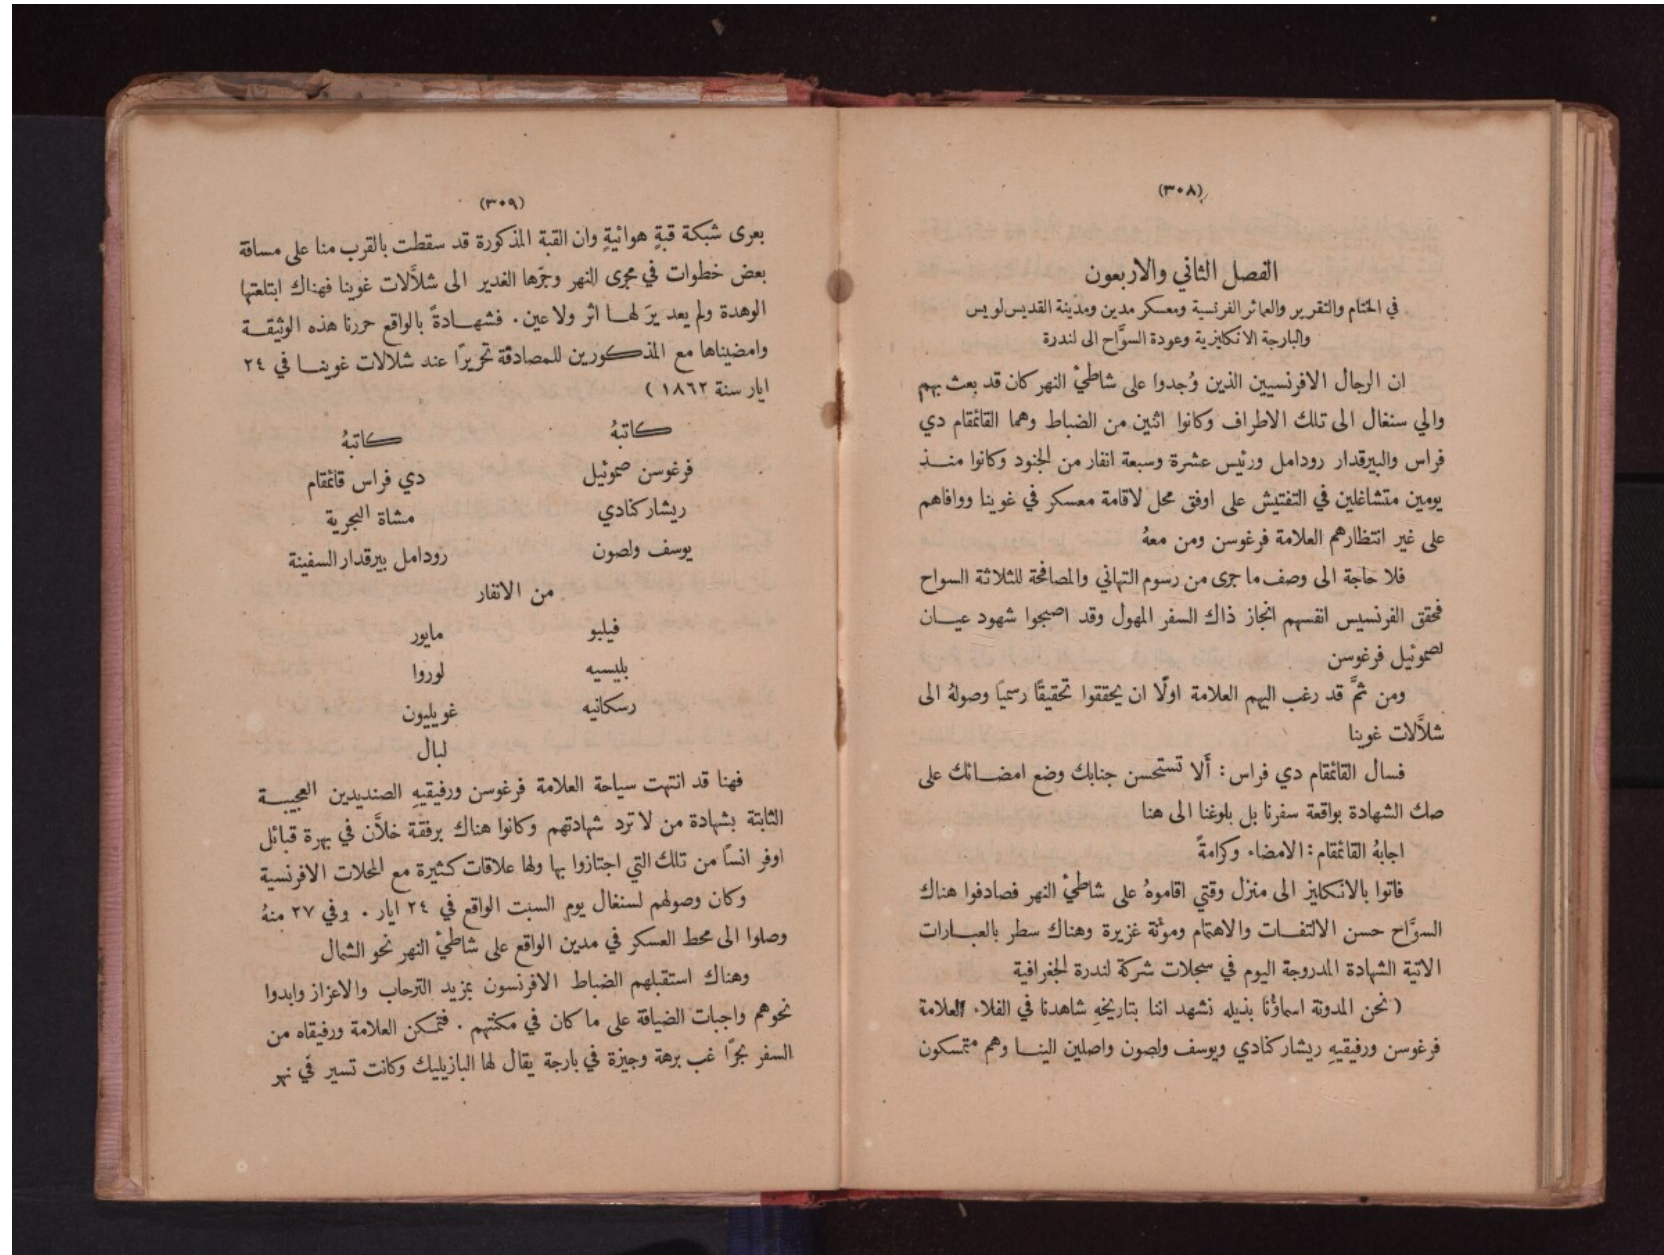 (٣٠٨)
الفصل الثاني والاربعون
في الختام والتقرير والعمائر الفرنسية ومعسكر مدين ومدينة القديس لويس
والبارجة الانكليزية وعودة السوَّاح الى لندرة
ان الرجال الافرنسيين الذين وُجدوا على شاطئ النهر كان قد بعث بهم
والي سنغال الى تلك الاطراف وكانوا اثنين من الضباط وهما القائمقام دي
فراس والبيرقدار رودامل ورئيس عشرة وسبعة انفار من الجنود وكانوا منــذ
يومين متشاغلين في التفتيش على اوفق محل لاقامة معسكر في غوينا ووافاهم
على غير انتظارهم العلامة فرغوسن ومن معهُ
فلا حاجة الى وصف ما جرى من رسوم التهاني والمصافحة للثلاثة السواح
فحقق الفرنسيس انفسهم انجاز ذاك السفر المهول وقد اصبحوا شهود عيــان
لصموئيل فرغوسن
ومن ثمَّ قد رغب اليهم العلامة اولًا ان يحققوا تحقيقًا رسميًا وصولهُ الى
شلاَّلات غوينا
فسال القائمقام دي فراس : أَلا تستحسن جنابك وضع امضــائك على
صك الشهادة بواقعة سفرنا بل بلوغنا الى هنا
اجابهُ القائمقام : الامضاء وكرامةً
فاتوا بالانكليز الى منزل وقتي اقاموهُ على شاطئ النهر فصادفوا هناك
السوَّاح حسن الالتفــات والاهتمام ومؤنة غزيرة وهناك سطر بالعبــارات
الاتية الشهادة المدروجة اليوم في سجلات شركة لندرة الجغرافية
( نحن المدونة اسماؤنا بذيله نشهد اننا بتاريخهِ شاهدنا في الفلاء العلامة
فرغوسن ورفيقيهِ ريشار كنادي ويوسف ولصون واصلين الينــا وهم متمسكون
(٣٠٩)
بعرى شبكة قبةٍ هوائيةٍ وان القبة المذكورة قد سقطت بالقرب منا على مسافة
بعض خطوات في مجرى النهر وجرَّها الغدير الى شلاَّلات غوينا فهناك ابتلعتها
الوهدة ولم يعد يرَ لهــا اثر ولا عين . فشهــادةً بالواقع حررنا هذه الوثيقــة
وامضيناها مع المذكورين للمصادقة تحريرًا عند شلالات غوينــا في ٢٤
ايار سنة ١٨٦٢ )
كاتبهُ كاتبهُ
فرغوسن صموئيل دي فراس قائمقام
ريشار كنادي مشاة البحرية
يوسف ولصون رودامل بيرقدار السفينة
من الانفار
فيلبو مايور
بليسيه لوروا
رسكانيه غويليون
لبال
فهنا قد انتهت سياحة العلامة فرغوسن ورفيقيهِ الصنديدين العجيبــة
الثابتة بشهادة من لا ترد شهادتهم وكانوا هناك برفقة خلاَّن في بهرة قبائل
اوفر انسًا من تلك التي اجتازوا بها ولها علاقات كثيرة مع المحلات الافرنسية
وكان وصولهم لسنغال يوم السبت الواقع في ٢٤ ايار . وفي ٢٧ منهُ
وصلوا الى محط العسكر في مدين الواقع على شاطئ النهر نحو الشمال
وهناك استقبلهم الضباط الافرنسون بمزيد الترحاب والاعزاز وابدوا
نحوهم واجبات الضيافة على ما كان في مكنتهم . فتمكن العلامة ورفيقاه من
السفر بحرًا غب برهة وجيزة في بارجة يقال لها البازيليك وكانت تسير في نهر